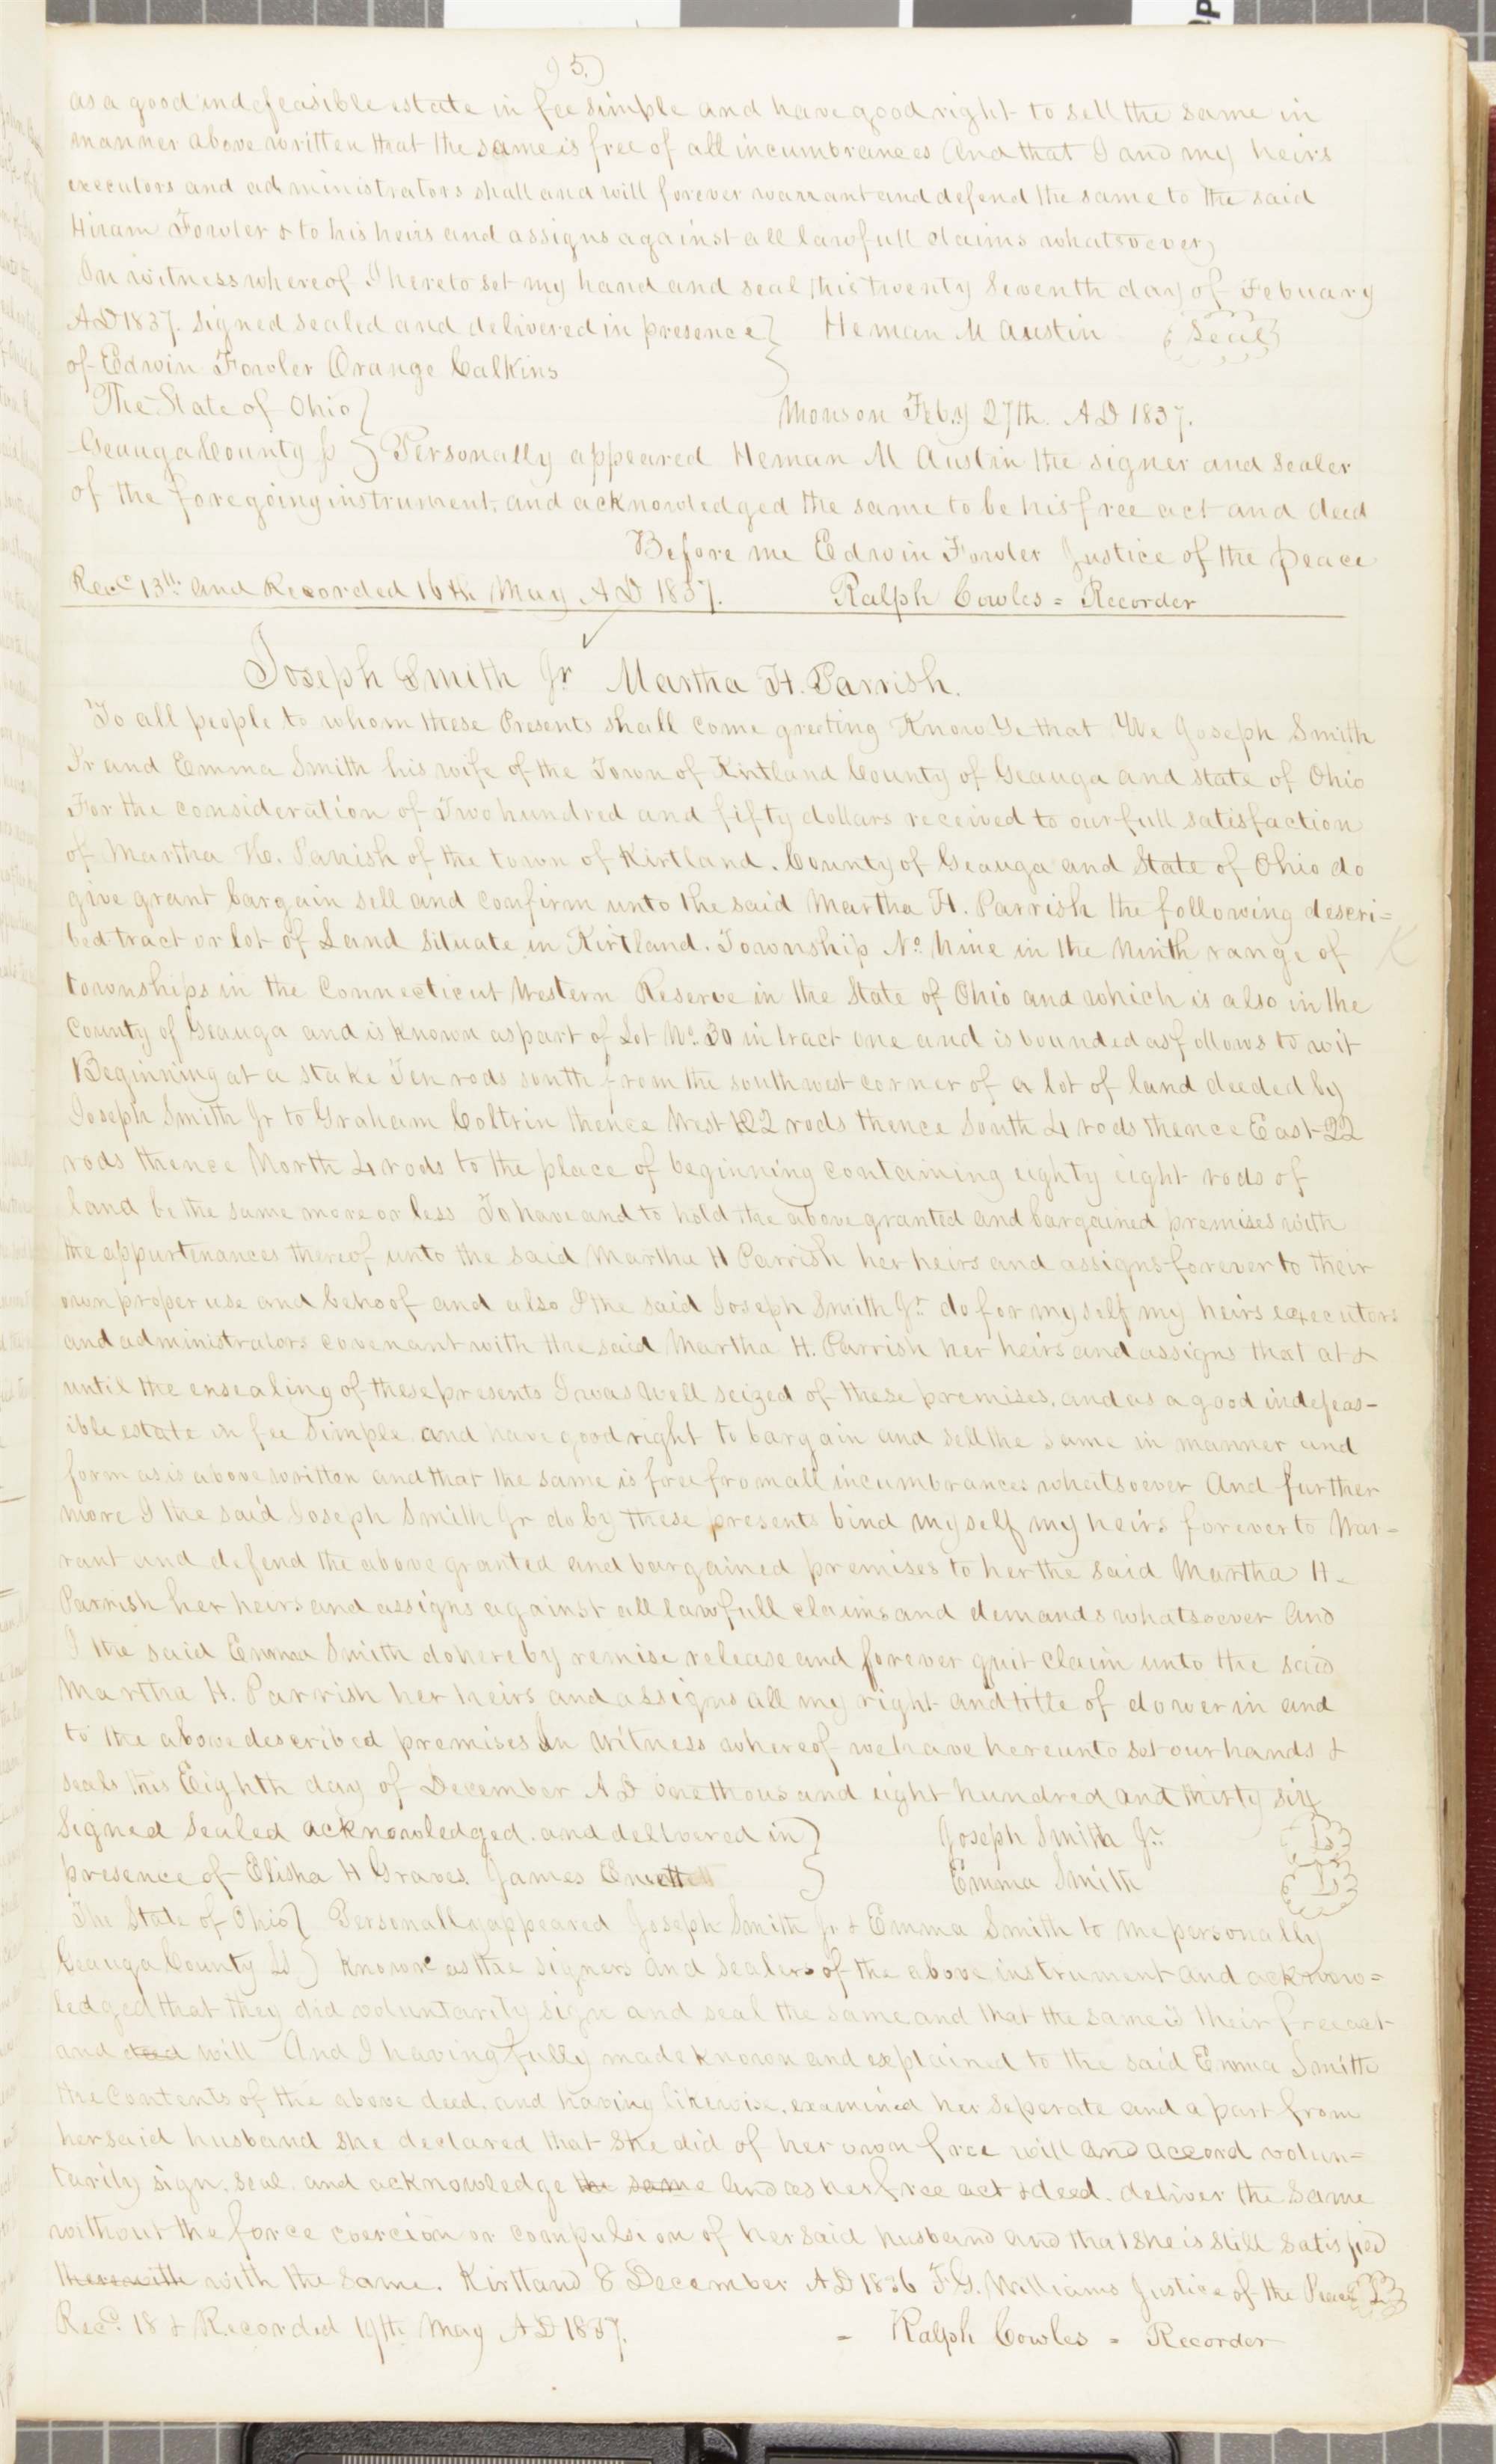 95.)
as a good indefeasible estate in fee simple and have good right to sell the same in
manner above written that the same is free of all incumbrances And that I and my heirs
executors and administrators shall and will forever warrant and defend the same to the said
Hiram Fowler & to his heirs and assigns against all lawfull claims whatsoever,
In witness whereof I hereto set my hand and seal this twenty Seventh day of Febuary
AD 1837. Signed sealed and delivered in presence } Heman M Austin (Seal)
of Edwin Fowler Orange Calkins
The State of Ohio } Monson Feby 27th. AD 1837.
Geauga County ss } Personally appeared Heman M Austin the signer and sealer
of the foregoing instrument, and acknowledged the same to be his free act and deed
Before me Edwin Fowler Justice of the peace
Recd 13th and Recorded 16th May AD 1837. Ralph Cowles = Recorder
Joseph Smith Jr Martha H. Parrish.
To all people to whom these Presents shall come greeting Know Ye that We Joseph Smith
Jr and Emma Smith his wife of the Town of Kirtland County of Geauga and state of Ohio
For the consideration of Two hundred and fifty dollars received to our full satisfaction
of Martha H. Parrish of the town of Kirtland. County of Geauga and State of Ohio do
give grant bargain sell and confirm unto the said Martha H. Parrish the following descri=
bed tract or lot of Land situate in Kirtland. Township No. Nine in the Ninth range of
townships in the Connecticut Western Reserve in the State of Ohio and which is also in the
County of Geauga and is known as part of Lot No. 30 in tract one and is bounded as follows to wit
Beginning at a stake Ten rods south from the southwest corner of a lot of land deeded by
Joseph Smith Jr to Graham Coltrin thence West 22 rods thence South 4 rods thence East 22
rods thence North 4 rods to the place of beginning containing eighty eight rods of
land be the same more or less To have and to hold the above granted and bargained premises with
the appurtenances thereof unto the said Martha H Parrish her heirs and assigns forever to their
own proper use and behoof and also I the said Joseph Smith Jr. do for myself my heirs executors
and administrators covenant with the said Martha H. Parrish her heirs and assigns that at &
until the ensealing of these presents I was well seized of these premises, and as a good indefeas-
ible estate in fee simple, and have good right to bargain and sell the same in manner and
form as is above written and that the same is free from all incumbrances whatsoever And further
more I the said Joseph Smith Jr do by these presents bind myself my heirs forever to War=
rant and defend the above granted and bargained premises to her the said Martha H.
Parrish her heirs and assigns against all lawfull claims and demands whatsoever And
I the said Emma Smith do hereby remise release and forever quit claim unto the said
Martha H. Parrish her heirs and assigns all my right and title of dower in and
to the above described premises In witness whereof we have hereunto set our hands &
seals this Eighth day of December AD one thousand eight hundred and thirty six
Signed Sealed acknowledged. and delivered in } Joseph Smith Jr. LS
presence of Elisha H Groves. James } Emma Smith LS
The State of Ohio } Personally appeared Joseph Smith Jr & Emma Smith to me personally
Geauga County SS } known as the signers and sealers of the above instrument and acknow=
ledged that they did voluntarily sign and seal the same, and that the same is their free act
and deed will And I having fully made known and explained to the said Emma Smith
the contents of the above deed, and having likewise, examined her seperate and apart from
her said husband she declared that she did of her own free will and accord volun=
tarily sign, seal, and acknowledge the same and as her free act & deed. deliver the same
without the force coercion or compulsion of her said husband and that she is still satisfied
therewith with the same. Kirtland 8 December AD 1836 F.G. Williams Justice of the Peace LS
Recd. 18 & Recorded 19th May AD 1837. - Ralph Cowles = Recorder